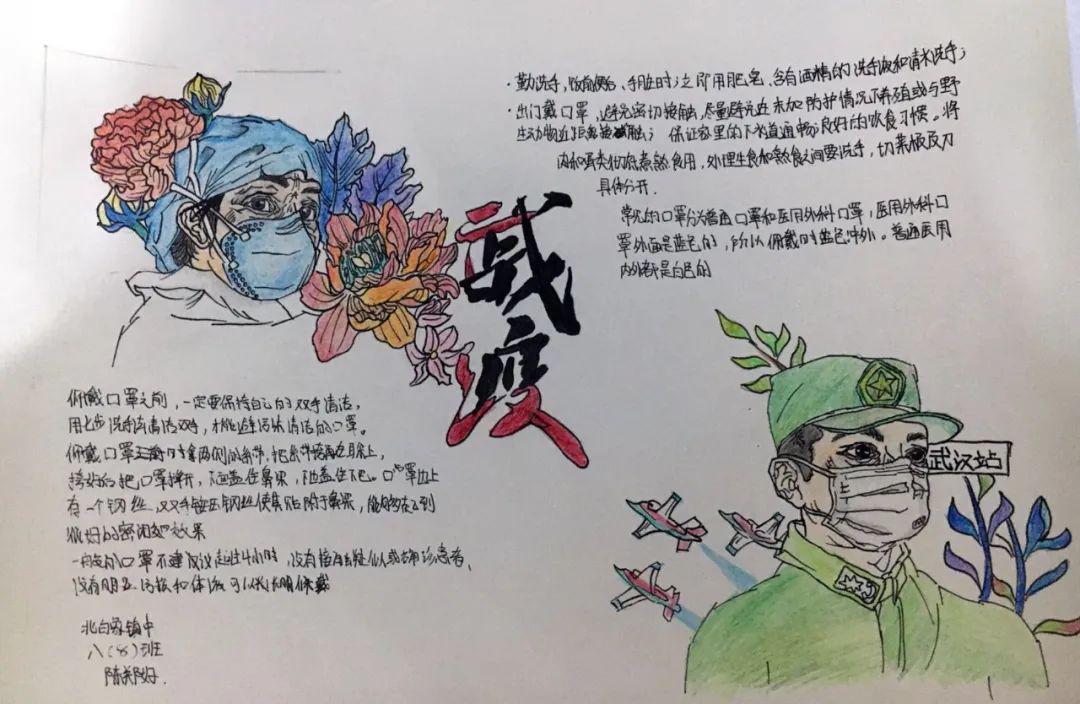 ·勤洗手,饭前便后、手脏时,立即用肥皂、含有酒精的洗手液和清水洗手;
·出门戴口罩,避免密切接触,尽量避免近未加防护情况下养殖或与野
生动物近距离接触; 保证家里的下水道通畅,良好的饮食习惯。将
肉和蛋类彻底煮熟食用,处理生食和熟食之间要洗手,切菜板及刀
具体分开.
常见的口罩分为普通口罩和医用外科口罩,医用外科口
罩外面是蓝色的,所以佩戴时蓝色冲外。普通医用
内外都是白色的
战
疫
武汉站
佩戴口罩之前,一定要保持自己的双手清洁,
用七步洗手法清洁双手,才能避污染清洁的口罩。
佩戴口罩 两侧的系带,把系带挂在耳朵上,
挂好后把口罩拉开,上面盖住鼻梁,下面盖住下巴。口罩边上
有一个钢丝,双手按压钢丝使其贴附于鼻梁,能够达到
很好的密闭 效果
一般的口罩不建议超过4小时,没有接触疑似或确诊患者,
没有明显污损和体液可以 佩戴
北白象镇中
八(8)班
陈